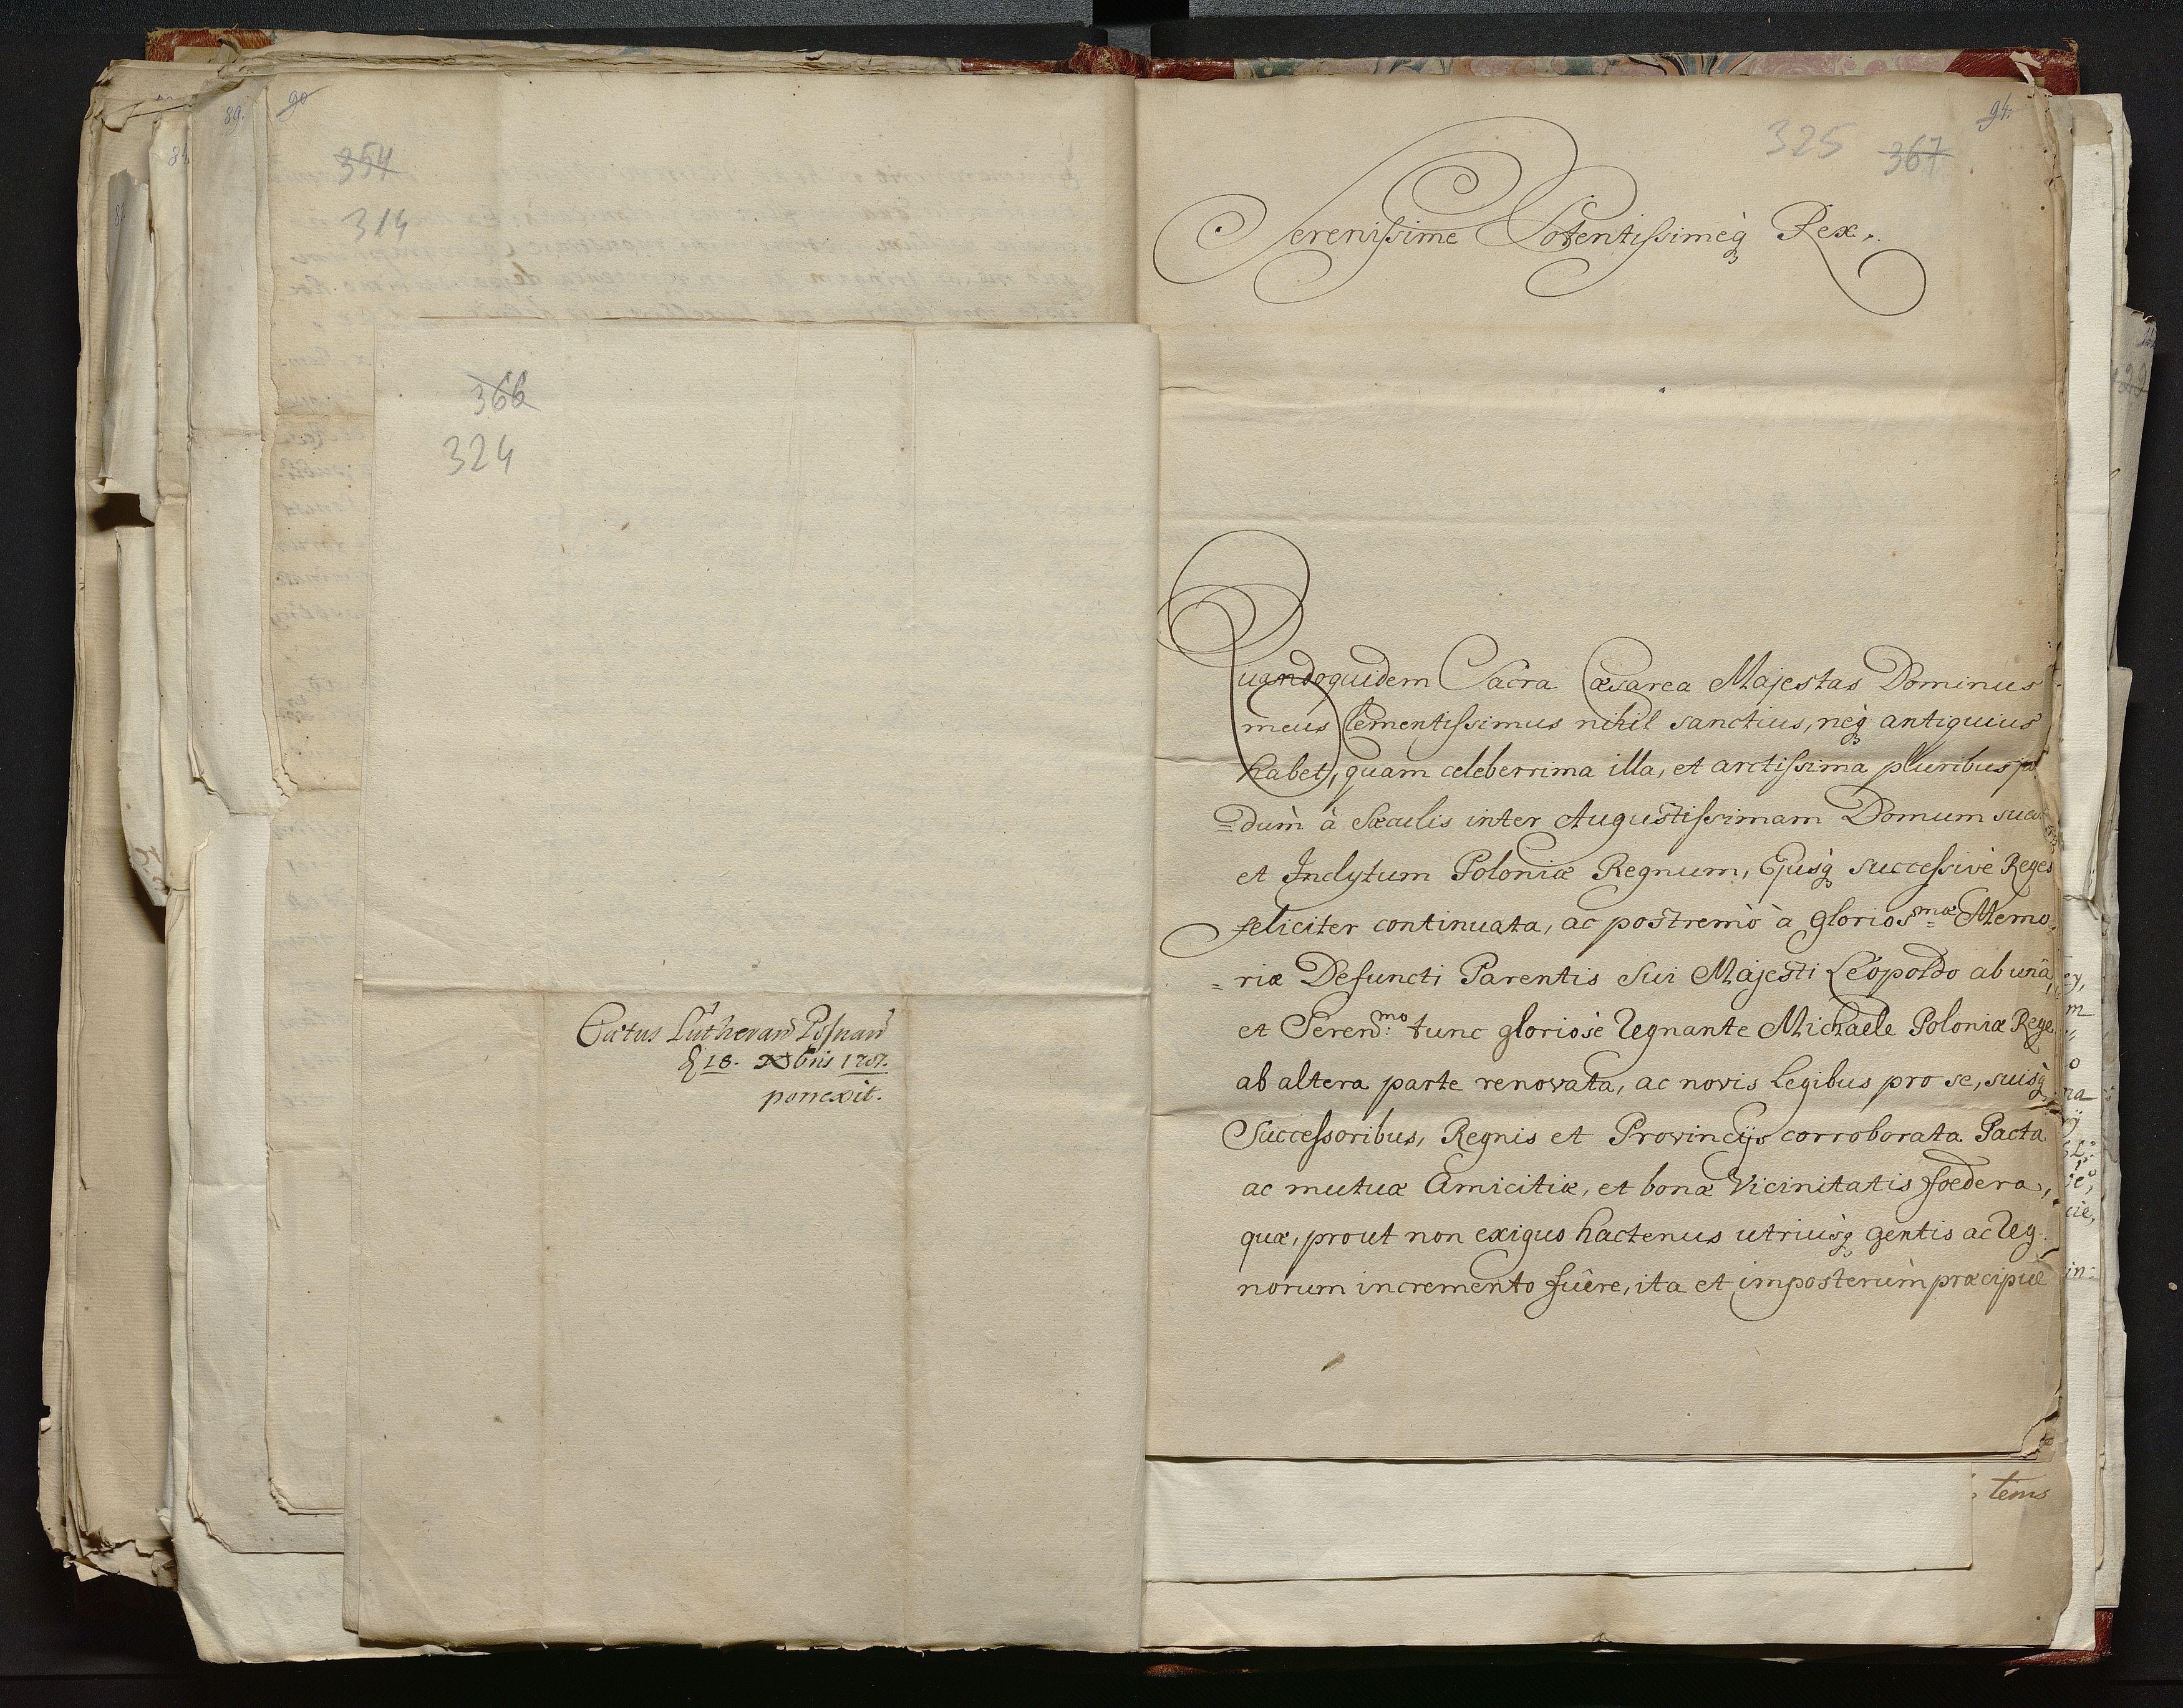 89.
90
354
314
366
324
Cœtus Lutheran Posnan
18. Xbris 1707.
porrexit.
94.
325 367
Serenissime Potentissimeq Rex.
Quandoquidem Sacra Cæsarea Majestas Dominus
meus Clementissimus nihil sanctius, neq antiquius
habet, quam celeberrima illa, et arctissima pluribus ja
=dum à Sæculis inter Augustissimam Domum sua
et Inclytum Poloniæ Regnum, Ejusq successivè Reges
feliciter continuata, ac postremò à glorios:mæ Memo=
=riæ Defuncti Parentis Sui Majesti Leopoldo ab unâ,
et Seren:mo tunc gloriosè Regnante Michaele Poloniæ Rege
ab altera parte renovata, ac novis Legibus pro se, suisq
Successoribus, Regnis et Provincijs corroborata Pacta
ac mutuæ Amicitiæ, et bonæ Vicinitatis foedera,
quæ, prout non exiguo hactenus utriusq gentis ac Reg
norum incremento fuêre, ita et imposterùm præcipuè
tems